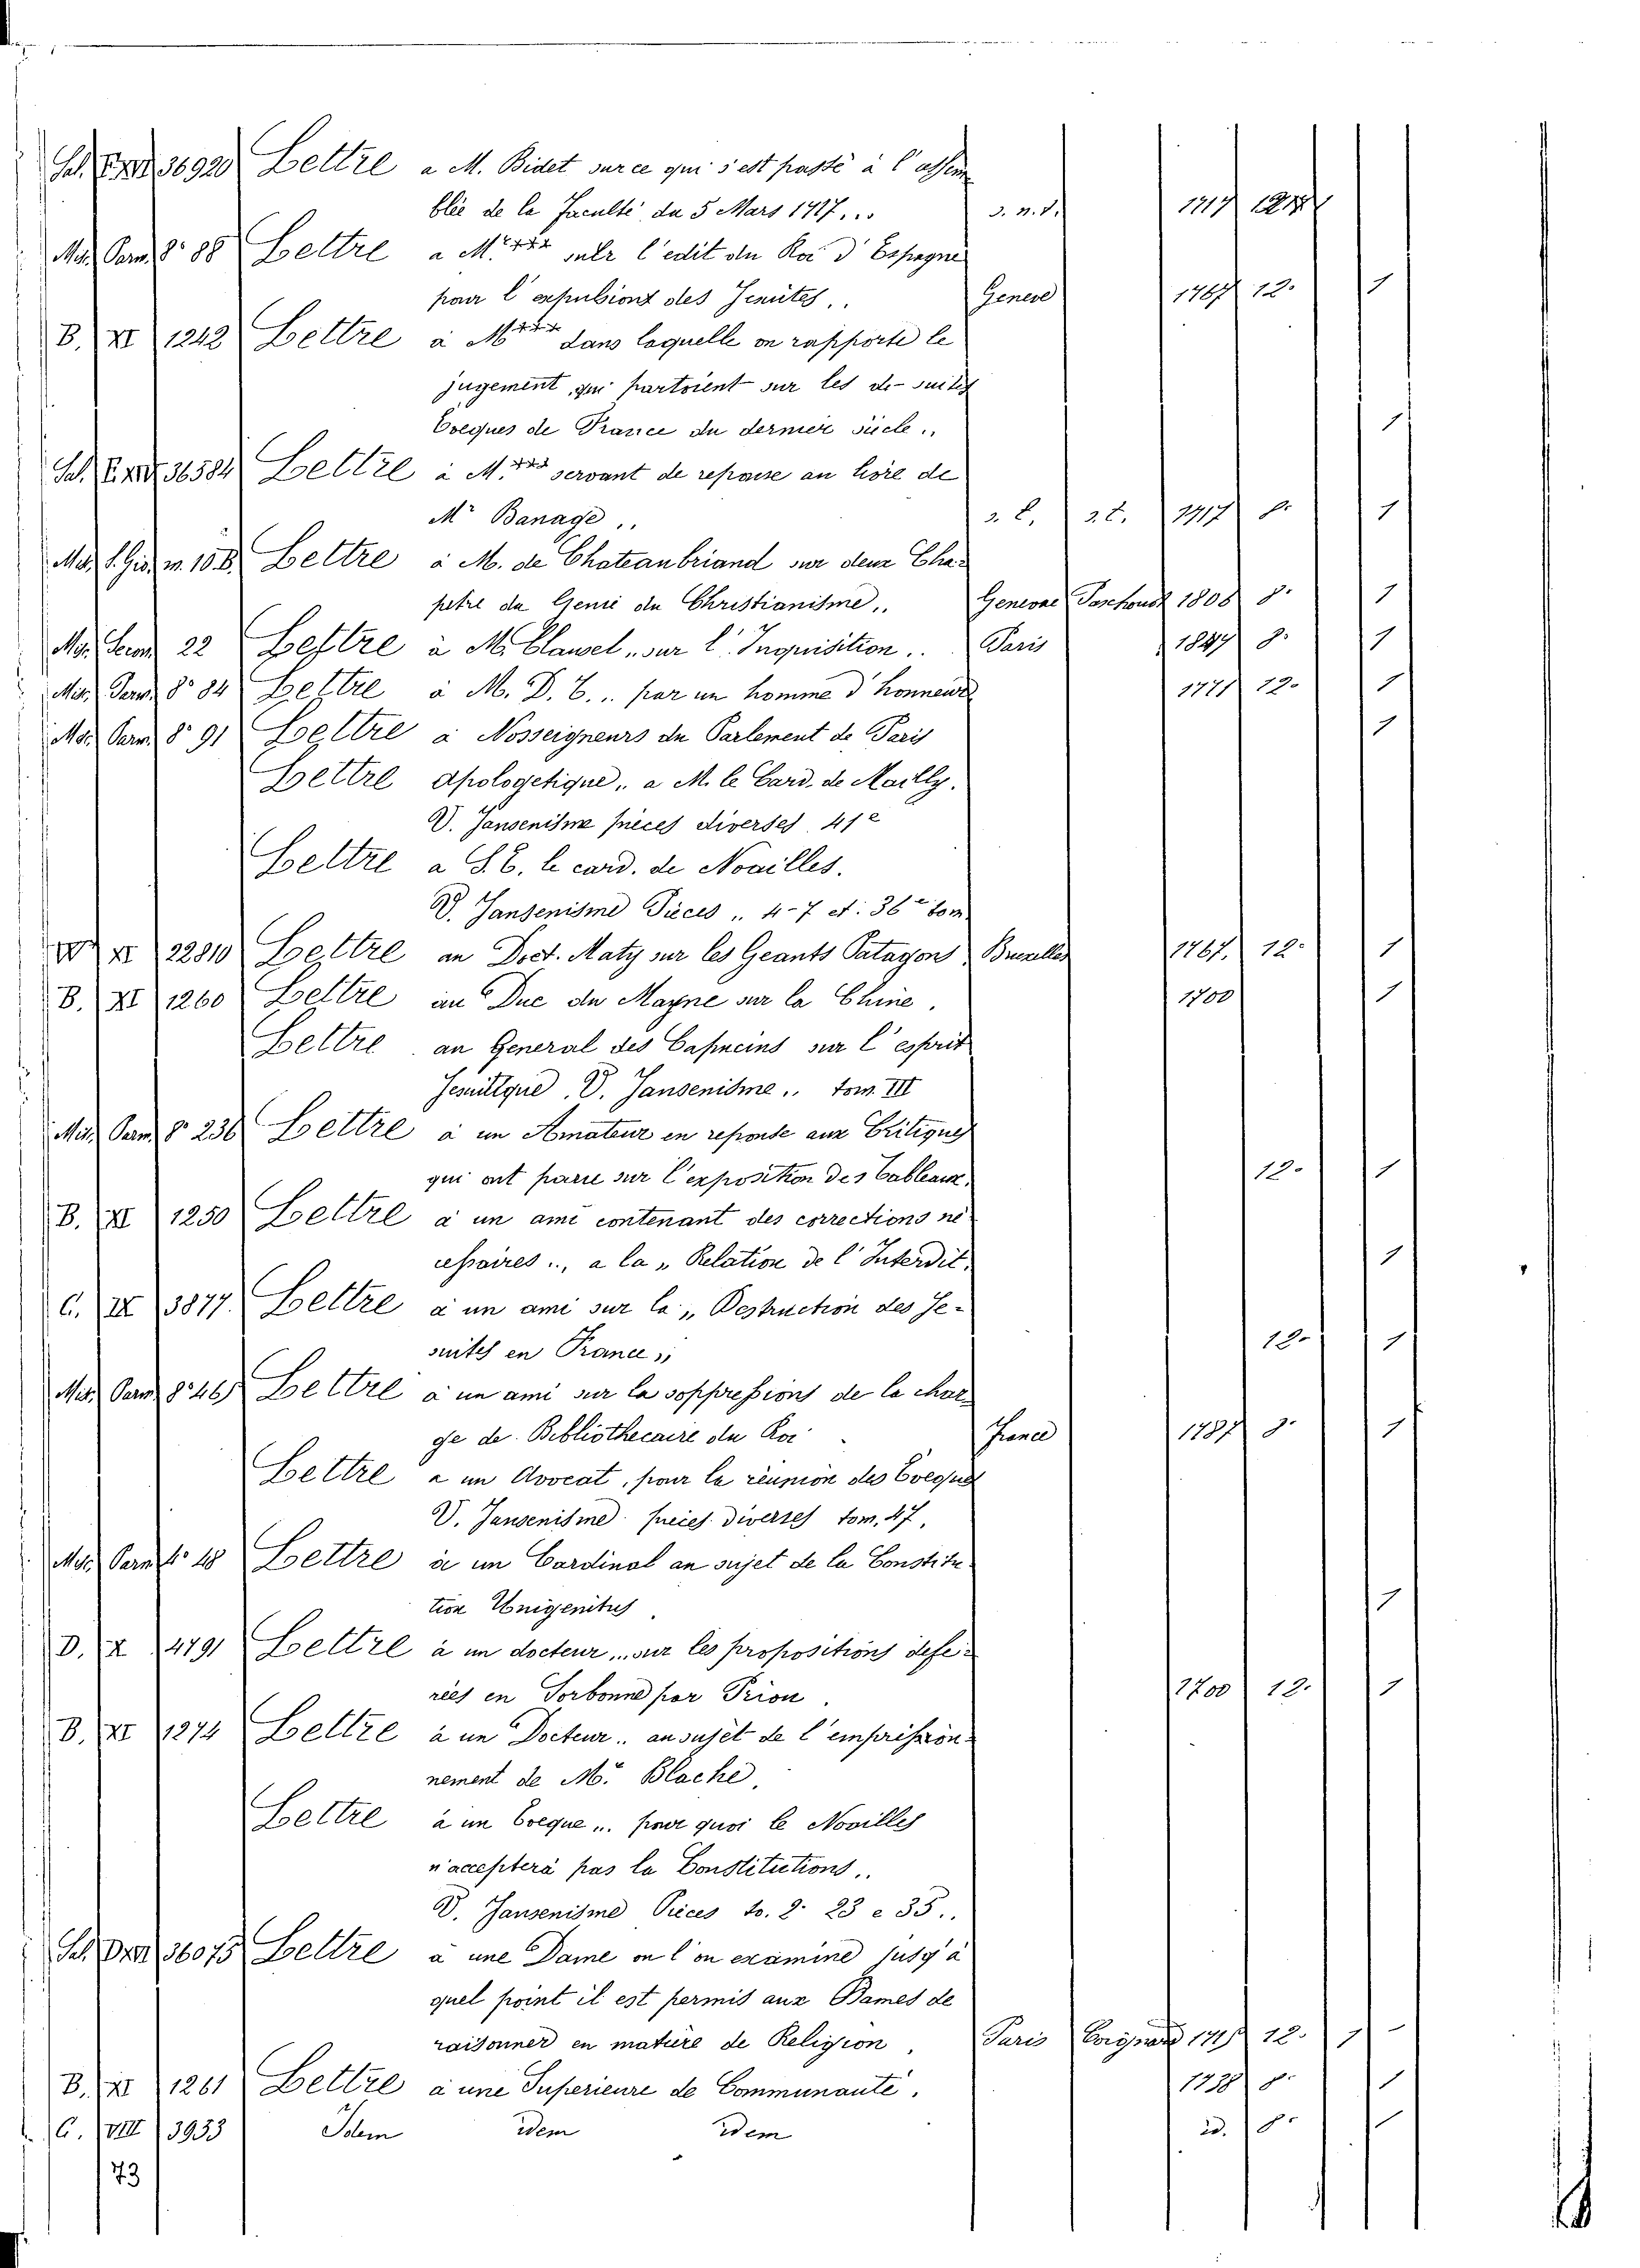 36920 Lettre a M. Bidet sur ce qui s'est passé à l'assem
blée de la Faculté du 5 Mars 1717... s. n. t. 1717
Mis. Parm. 8° 88 Lettre a M.*** sulr l'edit du Roi d'Espagne
pour l'expulsions des Jesuites.. Geneve 1767 12° 1
B. XI 1242 Lettre à M*** dans laquelle on rapporte le
jugement, qui partoient sur les de-suites
Eveques de France du dernier siecle.. 1
36584 Lettre à M.*** servant de reponse au livre de
Mr Banage.. s. l. s. t. 1717 8° 1
Lettre à M. de Chateaubriand sur deux Cha-
petre du Genie du Christianisme.. Geneve Paschoud 1808 8° 1
22 Lettre à M. Clausel, sur l'Inquisition.. Paris 1847 8° 1
Mis. Parm. 8° 84 Lettre à M. D. C... par un homme d'honneur 1771 12° 1
Mis. Parm. 8° 91 Lettre a Nosseigneurs du Parlement de Paris 1
Lettre apologetique, a M. le Card. de Mailly.
V. Jansenisme pièces diverses 41e
Lettre a S. E. le card. de Noailles.
V. Jansenisme Pieces .. 4-7 et. 36e tom
XI 22810 Lettre au Doct. Maty sur les Geants Patagons Bruxelles 1767. 12° 1
B. XI 1260 Lettre au Duc du Mayne sur la Chine. 1700 1
Lettre au General des Capucins sur l'esprit
Jesuitique. V. Jansenisme.. tom. III
Mis. Parm. 8° 236 Lettre à un Amateur en reponse aux Critiques
qui ont parue sur l'exposition des Tableaux. 12° 1
B. XI 1250 Lettre à un ami contenant des corrections né-
cessaires.., a la „ Relation de l'Interdit. 1
C. IX 3877. Lettre à un ami sur la „ Destruction des Je-
suites en France „ 12° 1
Mis. Parm. 8° 46 Lettre à un ami sur la soppressions de la char
ge de Bibliothecaire du Roi France 1787 8° 1
Lettre a un Avocat, pour la réunion des Eveques
V. Jansenisme pieces diverses tom. 47.
Mis. Parm. 4° 18 Lettre à un Cardinal au sujet de la Constitu-
tion Unigenitus 1
D. X 4791 Lettre à un docteur,.. sur les propositions defe-
reés en Sorbonne par Prion. 1700 12° 1
B. XI 1274 Lettre à un Docteur.. au sujet de l'emprission-
nement de Mr. Blache.
Lettre à un Eveque.. pour quoi le Novilles
n'acceptera pas la Constitutions..
V. Jansenisme Pièces to. 2. 23 e 35..
36075 Lettre à une Dame on l'on examine jusq'à
quel point il est permis aux Dames de
raisonner en matière de Religion, Paris 12° 1
B. XI 1261 Lettre à une Superieure de Communauté. 1738 8° 1
C. VIII 3933 Idem idem idem id. 8° 1
73